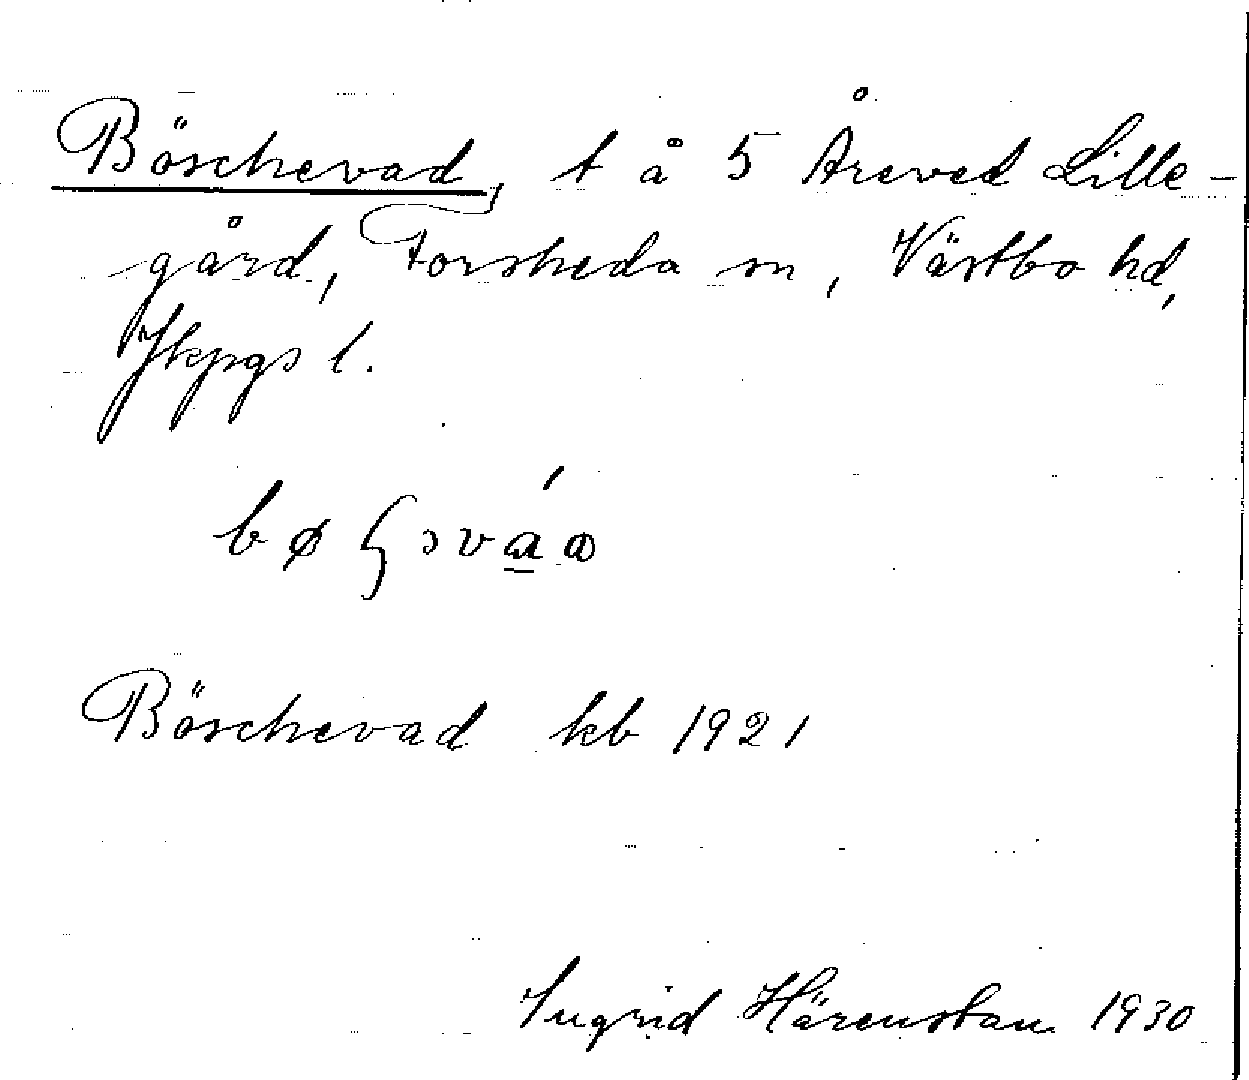 Böschevad, t å 5 Åreved Lille-
gård, Forsheda sn, Västbo hd,
Jkpgs l.
Böschevad kb 1921
Ingrid Härenstam 1930